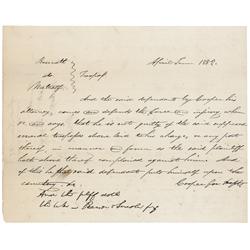 vs Trespass April Term 1882.
And the said defendant by Cooper his
attorney, comes and defends the force and injury, when
&c and says that he is not guilty of the said supposed
trespass above laid to his charge, or any part
thereof, in manner and form as the said plaintiff
hath above thereof complained against him. And of
this he the said defendant puts himself upon the
country &c. Cooper for Deft
And the plff doth
the like